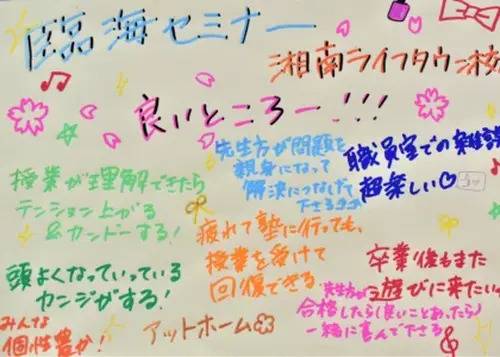 臨海セミナー
湘南ライフタウン校
良いところー!!!
先生方が問題を
親身になって
解決につなげて
下さる
職員室での雑談
超楽しい♡
授業が理解できたら
テンション上がる
&カンドーする!
疲れて塾に行っても、
授業を受けて
回復できる
頭よくなっていっている
カンジがする!
卒業後もまた
遊びに来たい
先生方が
合格したら(良いことあったら)
一緒に喜んで下さる
みんな
個性豊か!
アットホーム